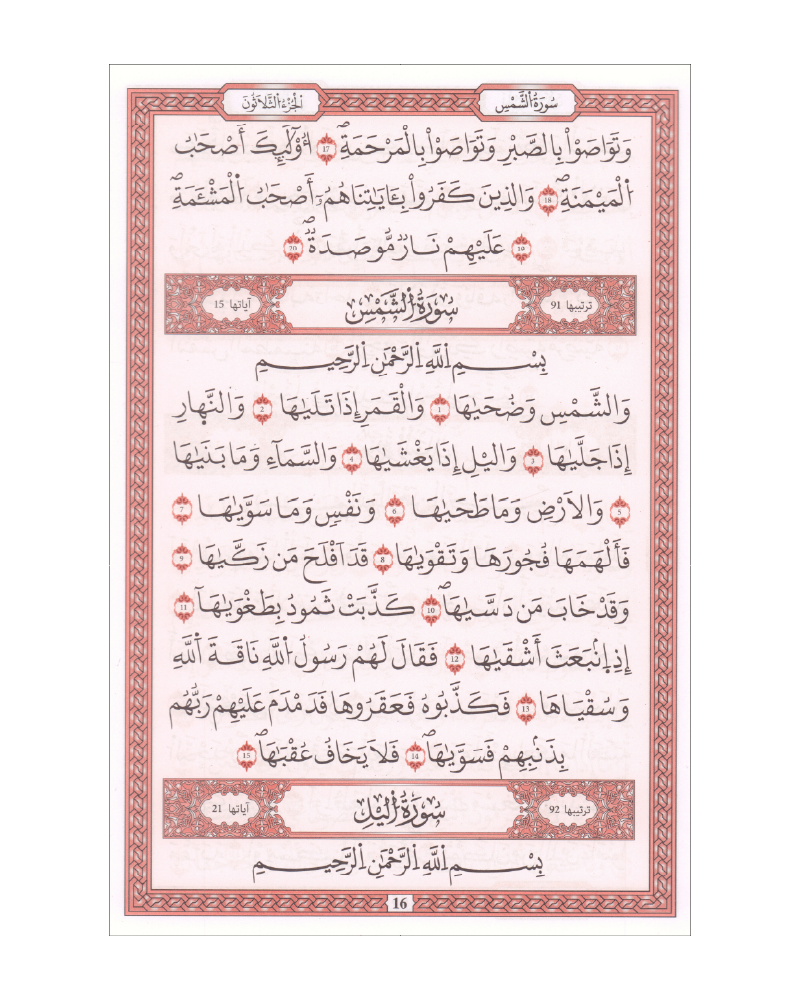 سُورَةُ الشَّمْسِ
الْجُزْءُ الثَّلَاثُونَ
وَتَوَاصَوْاْ بِالصَّبْرِ وَتَوَاصَوْاْ بِالْمَرْحَمَةِۖ 17 اُوْلَٰٓئِكَ أَصْحَٰبُ
اُ۬لْمَيْمَنَةِۖ 18 وَالذِينَ كَفَرُواْ بِـَٔايَٰتِنَا هُمُۥٓ أَصْحَٰبُ اُ۬لْمَشْـَٔمَةِۖ
19 عَلَيْهِمْ نَارٞ مُّوصَدَةٞۖ 20
ترتيبها 91
سُورَةُ الشَّمْسِ
آياتها 15
بِسْمِ اِ۬للَّهِ اِ۬لرَّحْمَٰنِ اِ۬لرَّحِيمِ
وَالشَّمْسِ وَضُحَيٰهَا 1 وَالْقَمَرِ إِذَا تَلَيٰهَا 2 وَالنَّهٰارِ
إِذَا جَلَّيٰهَا 3 وَاليْلِ إِذَا يَغْشَيٰهَا 4 وَالسَّمَآءِ وَمَا بَنَيٰهَا
5 وَالْأَرْضِ وَمَا طَحَيٰهَا 6 وَنَفْسٖ وَمَا سَوَّيٰهَا 7
فَأَلْهَمَهَا فُجُورَهَا وَتَقْوَيٰهَا 8 قَدَ اَفْلَحَ مَن زَكَّيٰهَا 9
وَقَدْ خَابَ مَن دَسَّيٰهَاۖ 10 كَذَّبَتْ ثَمُودُ بِطَغْوَيٰهَآ 11
إِذِ اِ۪نۢبَعَثَ أَشْقَيٰهَا 12 فَقَالَ لَهُمْ رَسُولُ اُ۬للَّهِ نَاقَةَ اَ۬للَّهِ
وَسُقْيَاهَا 13 فَكَذَّبُوهُ فَعَقَرُوهَا فَدَمْدَمَ عَلَيْهِمْ رَبُّهُم
بِذَنۢبِهِمْ فَسَوَّيٰهَاۖ 14 فَلَا يَخَافُ عُقْبَٰهَاۖ 15
ترتيبها 92
سُورَةُ اليْلِ
آياتها 21
بِسْمِ اِ۬للَّهِ اِ۬لرَّحْمَٰنِ اِ۬لرَّحِيمِ
16